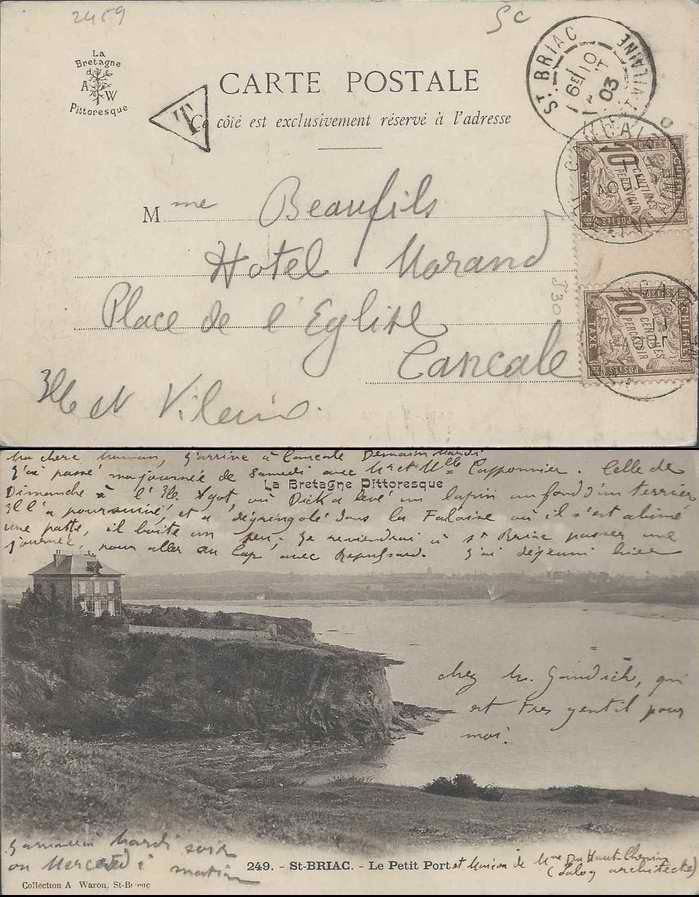 2459
5c
La
Bretagne
A W
Pittoresque
T
CARTE POSTALE
Ce côté est exclusivement réservé à l'adresse
ST BRIAC
6E 10
03
10
CENTIMES
À PERCEVOIR
POSTES
TAXE
10
CENTIMES
À PERCEVOIR
POSTES
TAXE
Mme Beaufils
Hotel Morand
530
Place de l'Eglise
Cancale
Ille et Vilaine.
Ma chere maman, J'arrive à Cancale Demain Mardi
J'ai passé ma journée de Samedi avec Mr et Mlle Capponnier. Celle de
La Bretagne Pittoresque
Dimanche à l'Ile Agot, où Dick a levé un lapin au fond d'un terrier
Il l'a poursuivi, et a dégringolé dans la Falaise où il s'est abimé
une patte, il boite un peu. Je reviendrai à St Briac passer une
journée, pour aller au Cap, avec J'ai déjeuné hier
chez Mr. qui
est très gentil pour
moi.
mardi soir
ou Mercredi matin
249. - St-BRIAC. - Le Petit Port et Maison de Mme Du Haut-Chemin
architecte)
Collection A. Waron, St-Brieuc